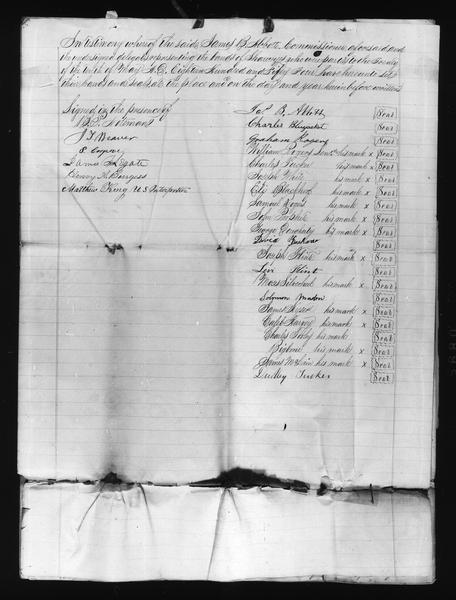 In testimony whereof the said James B. Abbott, Commissioner as aforesaid and
the undersigned delegates representing the bands of Shawnees who were parties to the Treaty
of the tenth of May A.D. Eighteen Hundred and Fifty Four have hereunto set
their hands and seals at the place and on the day and year herein before written
Signed in the presence of
J. T. Weaver
James Legate
Henry H. Burgess
Matthew King U S Interpreter
Jas B. Abbott Seal
Charles Bluejacket Seal
Graham Rogers Seal
William Rogers his mark x Seal
Charles his mark x Seal
Joseph White his mark x Seal
Eli Blackhoof Seal
Samuel his mark x Seal
John his mark x Seal
George Dougherty his mark x Seal
David Seal
Joseph Flint his mark x Seal
Levi Flint Seal
Moses Silverheel his mark x Seal
Solomon Madon Seal
James his mark x Seal
Caleb his mark x Seal
Charles his mark Seal
his mark x Seal
James McLain his mark x Seal
Dudley Tucker Seal